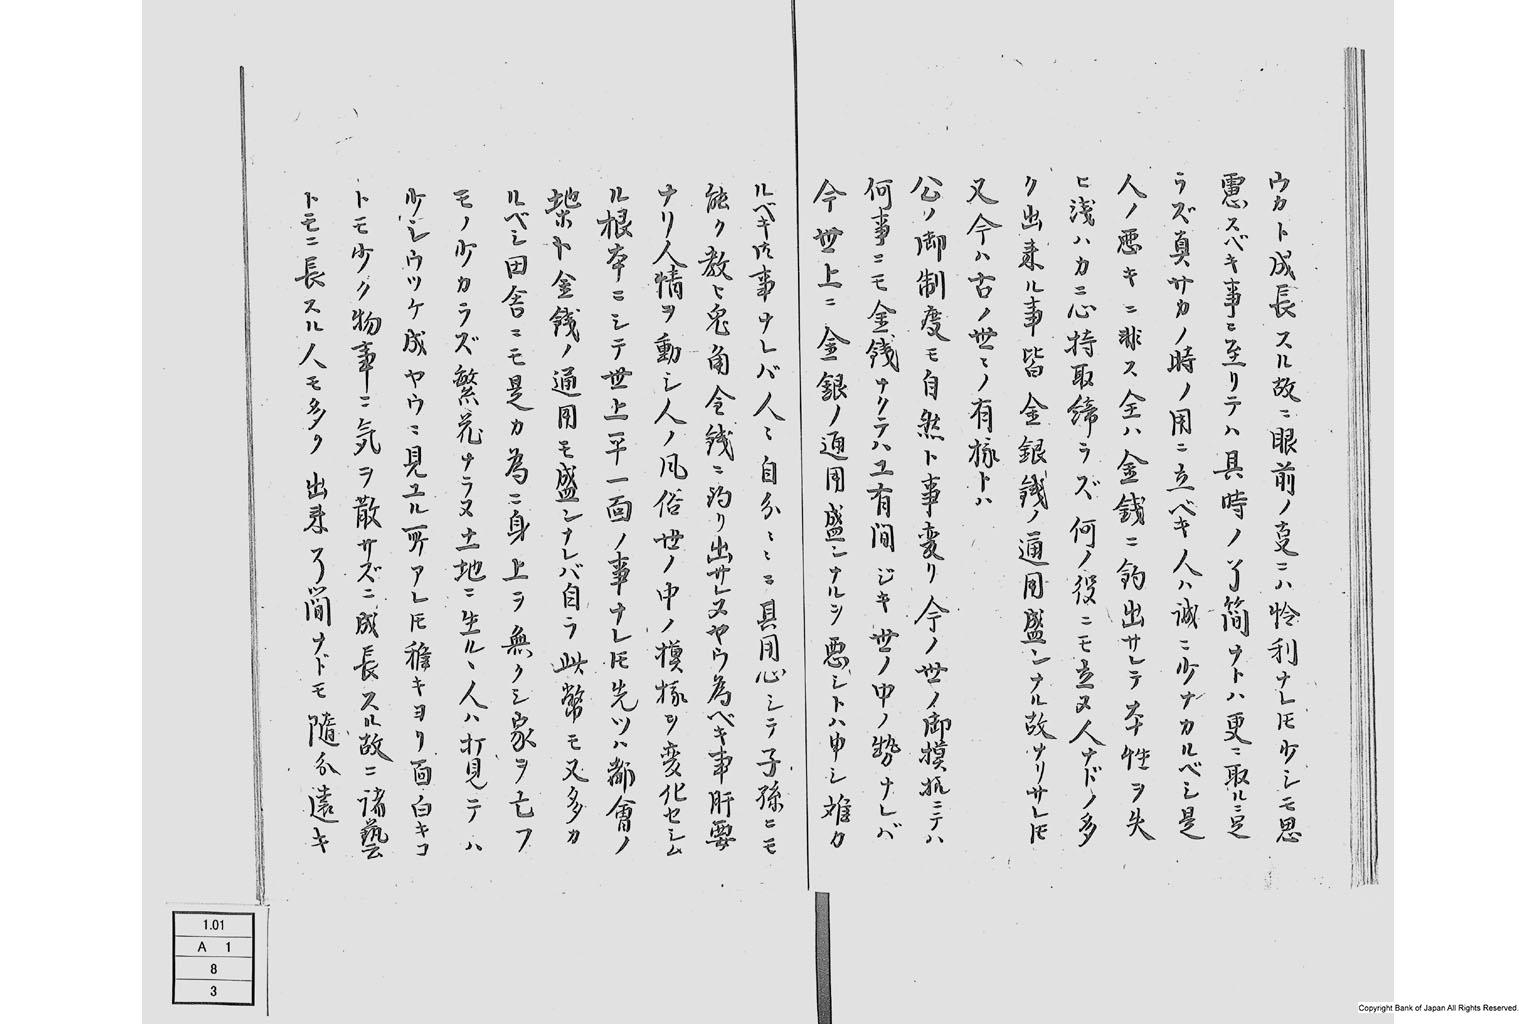 ウカト成長スル故ニ眼前ノ㕝ニハ怜利ナレ𪜈少シモ思
慮スベキ事ニ至リテハ具時ノ了簡ナトハ更ニ取ルニ足
ラズ真サカノ時ノ用ニ立ベキ人ハ誠ニ少ナカルベシ是
人ノ悪キニ非ス全ハ金銭ニ釣出サレテ本性ヲ失
ヒ浅ハカニ心持取締ラズ何ノ役ニモ立ヌ人ナドノ多
ク出来ル事皆金銀銭ノ通用盛ンナル故ナリサレ𪜈
又今ハ古ノ世ヽノ有様トハ
公ノ御制度モ自然ト事変リ今ノ世ノ御模様ニテハ
何事ニモ金銭ナクテハユ有間ジキ世ノ中ノ勢ナレバ
今世上ニ金銀ノ通用盛ンナルヲ悪シトハ申シ難カ
ルベキ事ナレバ人ヽ自分ヽヽニ具用心シテ子孫ニモ
能ク教ヒ兎角金銭ニ釣リ出サレヌヤウ為ベキ事肝要
ナリ人情ヲ動シ人ノ風俗世ノ中ノ模様ヲ変化セシム
ル根本ニシテ世上平一面ノ事ナレ𪜈先ツハ都會ノ
地ホト金銭ノ通用モ盛ンナレバ自ラ此幣モ又多カ
ルベシ田舎ニモ是カ為ニ身上ヲ無クシ家ヲ亡フ
モノ少カラズ繁花ナラヌ土地ニ生ルヽ人ハ打見テハ
少シウツケ成ヤウニ見ユル所アレ𪜈稚キヨリ面白キコ
トモ少ク物事ニ気ヲ散サズニ成長スル故ニ諸藝
トモニ長スル人モ多ク出来了簡ナドモ随分遠キ
1.01
A 1
8
3
Copyright Bank of Japan All Rights Reserved.